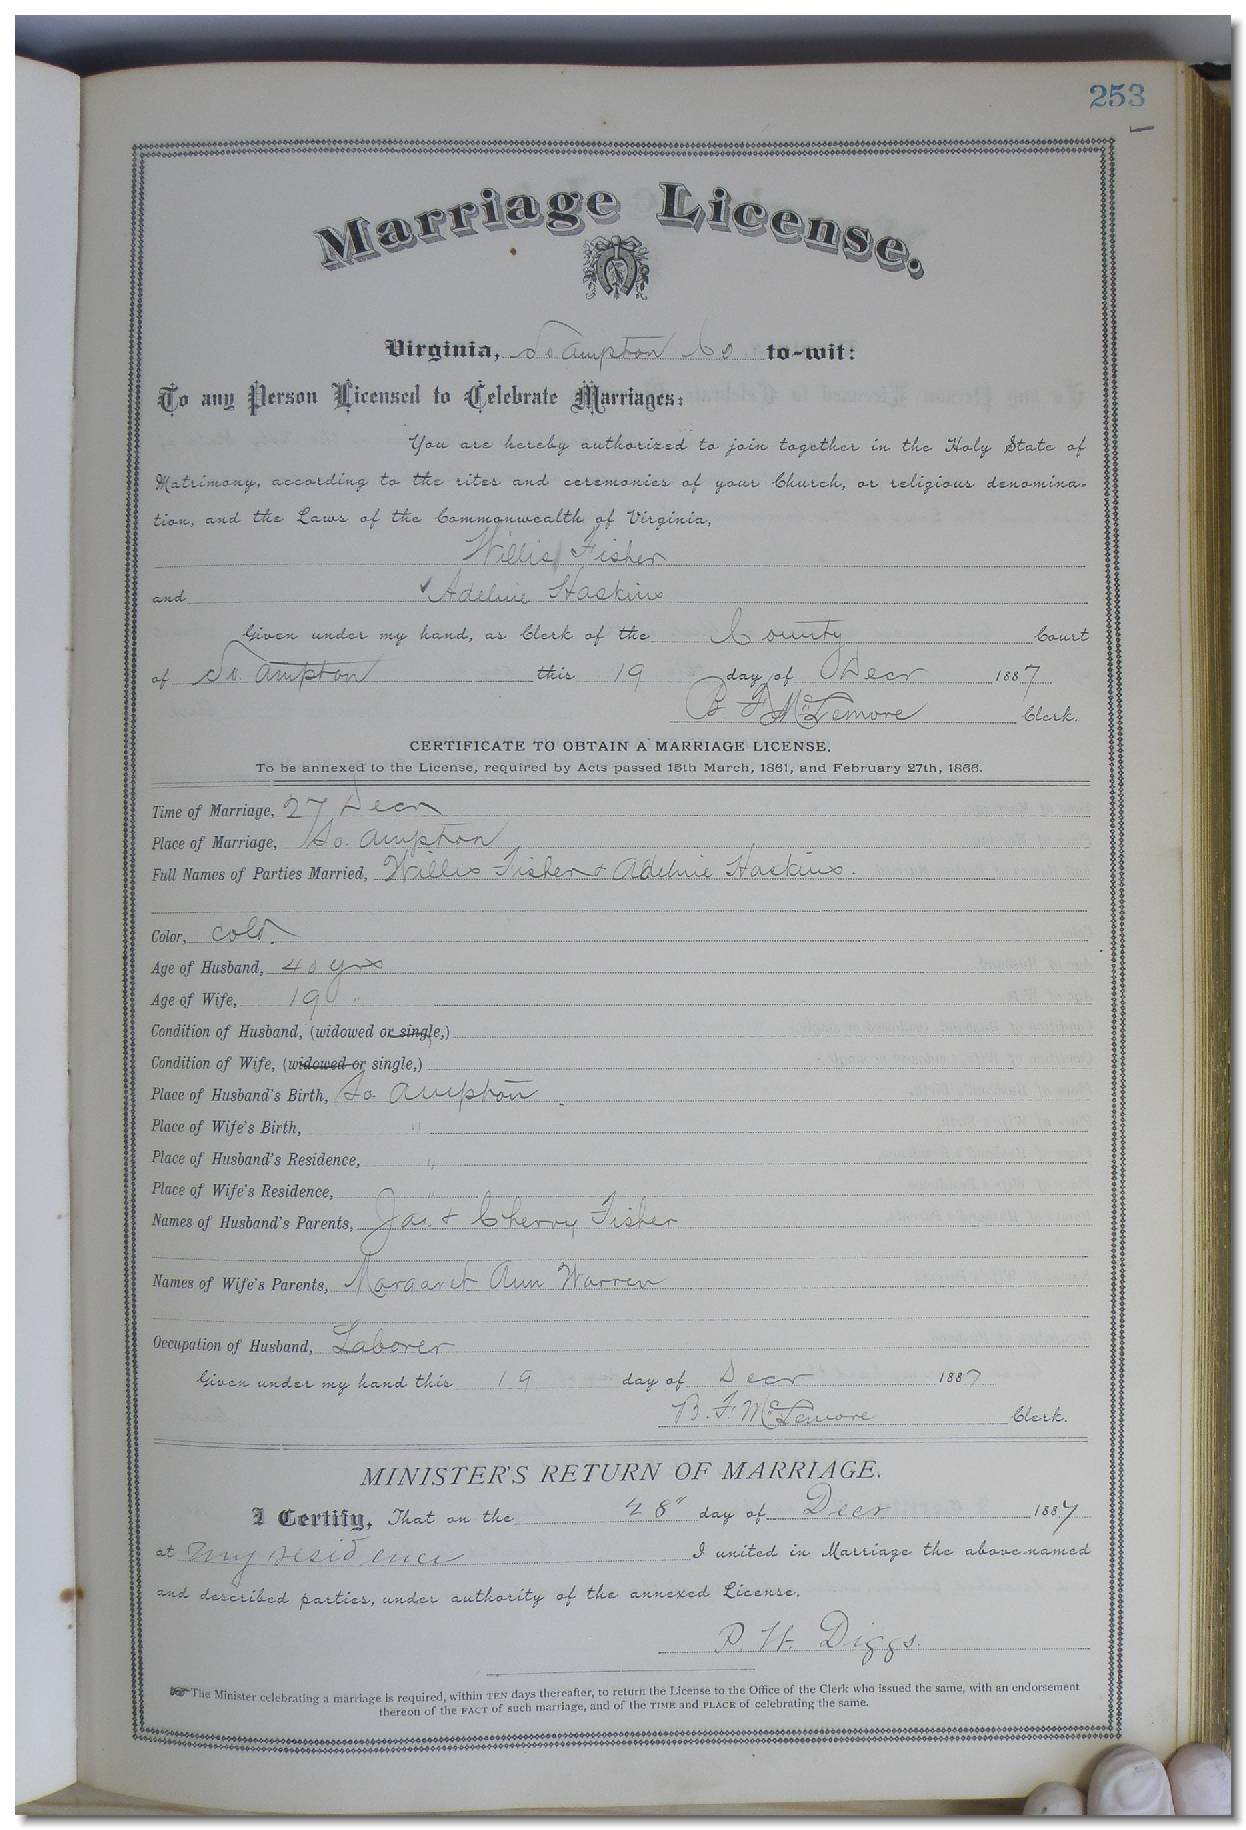 253
Marriage License.
Virginia, So ampton Co to-wit:
To any Person Licensed to Celebrate Marriages:
You are hereby authorized to join together in the Holy State of
Matrimony, according to the rites and ceremonies of your Church, or religious denomina-
tion, and the Laws of the Commonwealth of Virginia,
Willis Fisher
and Adeline Haskins
Given under my hand, as Clerk of the County Court
of So. ampton this 19 day of Decr 1887
B F McLemore Clerk.
CERTIFICATE TO OBTAIN A MARRIAGE LICENSE.
To be annexed to the License, required by Acts passed 15th March, 1861, and February 27th, 1866.
Time of Marriage, 27 Decr
Place of Marriage, So. ampton
Full Names of Parties Married, Willis Fisher & Adeline Haskins.
Color, cold.
Age of Husband, 40 yrs
Age of Wife, 19 "
Condition of Husband, (widowed or single,)
Condition of Wife, (widowed or single,)
Place of Husband's Birth, So ampton
Place of Wife's Birth, "
Place of Husband's Residence, "
Place of Wife's Residence, "
Names of Husband's Parents, Jas. & Cherry Fisher
Names of Wife's Parents, Margaret Ann Warren
Occupation of Husband, Laborer
Given under my hand this 19 day of Decr 1887
B. F. McLemore Clerk.
MINISTER'S RETURN OF MARRIAGE.
I Certify, That on the 28" day of Decr 1887
at my residence I united in Marriage the above-named
and described parties, under authority of the annexed License.
P. H. Diggs.
The Minister celebrating a marriage is required, within TEN days thereafter, to return the License to the Office of the Clerk who issued the same, with an endorsement
thereon of the FACT of such marriage, and of the TIME and PLACE of celebrating the same.